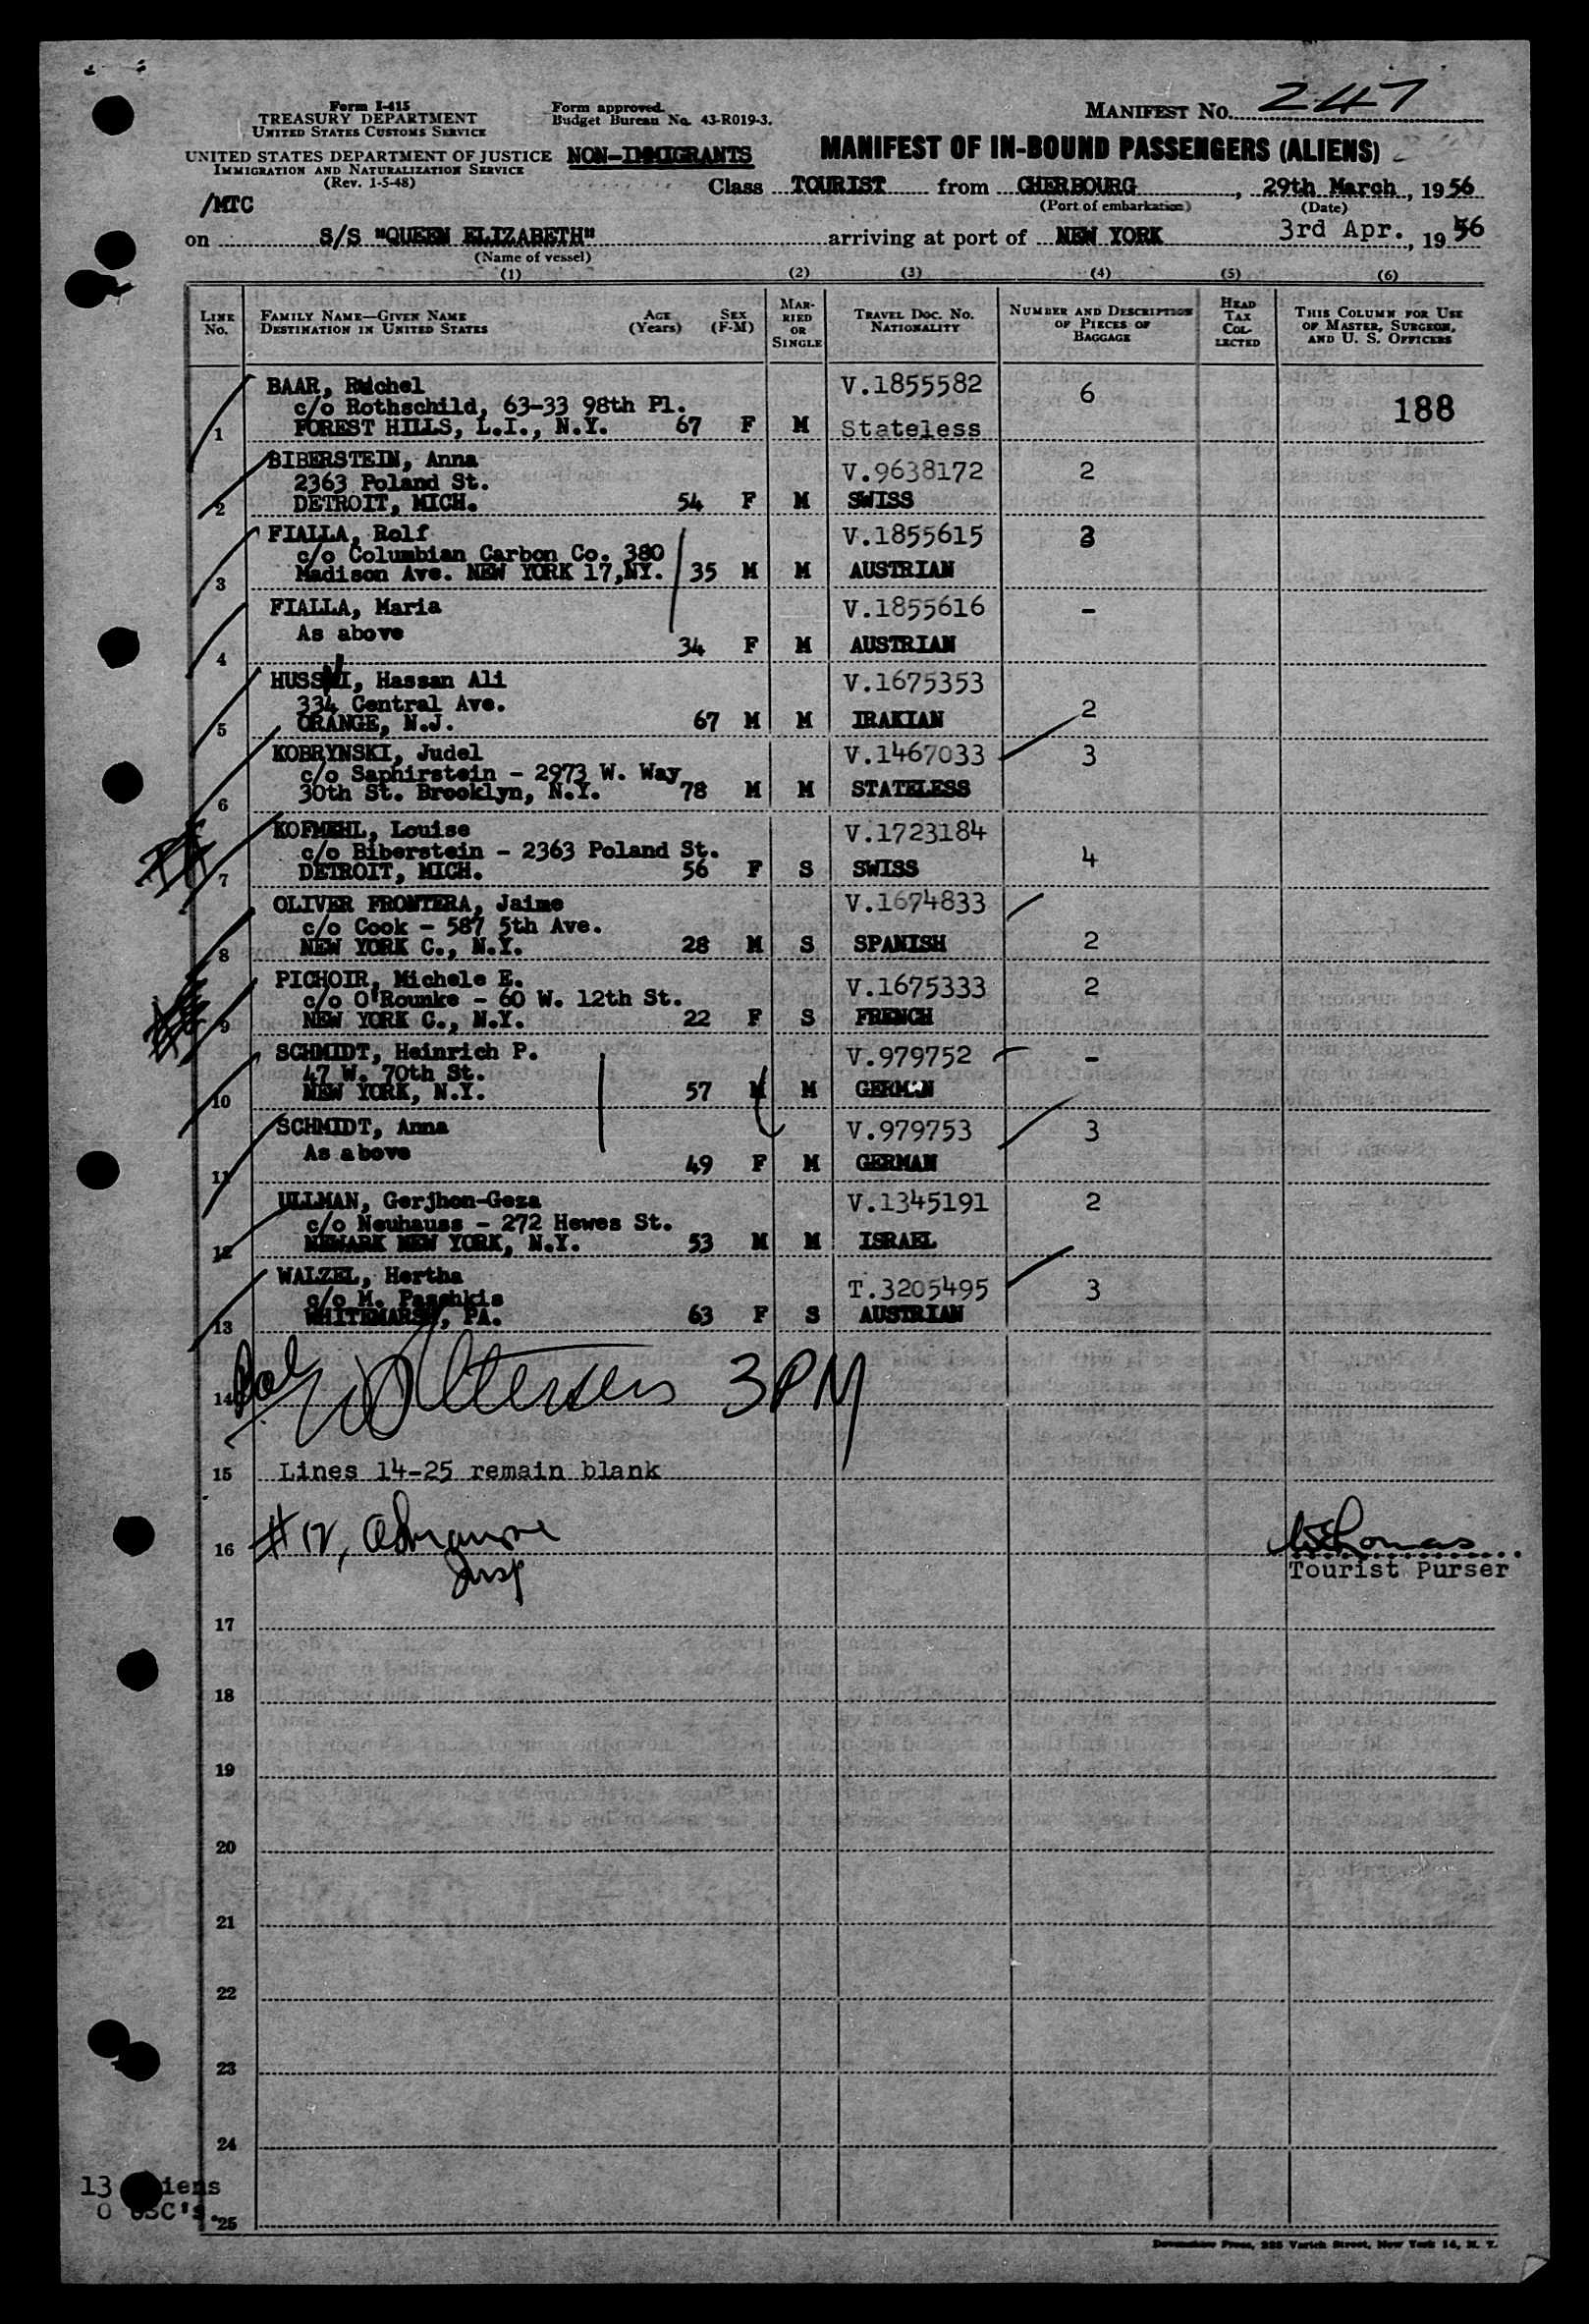 Form I-415
TREASURY DEPARTMENT
UNITED STATES CUSTOMS SERVICE
UNITED STATES DEPARTMENT OF JUSTICE
IMMIGRATION AND NATURALIZATION SERVICE
(Rev. 1-5-48)
/MTC
Form approved.
Budget Bureau No. 43-R019-3.
NON-IMMIGRANTS
MANIFEST NO. 247
MANIFEST OF IN-BOUND PASSENGERS (ALIENS)
Class TOURIST from CHERBOURG, 29th March, 1956
(Port of embarkation) (Date)
on S/S "QUEEN ELIZABETH" arriving at port of NEW YORK 3rd Apr., 1956
(Name of vessel)
(1) (2) (3) (4) (5) (6)
LINE No. FAMILY NAME—GIVEN NAME DESTINATION IN UNITED STATES AGE (Years) SEX (F-M) MARRIED OR SINGLE TRAVEL DOC. NO. NATIONALITY NUMBER AND DESCRIPTION OF PIECES OF BAGGAGE HEAD TAX COLLECTED THIS COLUMN FOR USE OF MASTER, SURGEON, AND U. S. OFFICERS
BAAR, Rachel V.1855582 6 188
c/o Rothschild, 63-33 98th Pl.
1 FOREST HILLS, L.I., N.Y. 67 F M Stateless
BIBERSTEIN, Anna V.9638172 2
2363 Poland St.
2 DETROIT, MICH. 54 F M SWISS
FIALLA, Rolf V.1855615 3
c/o Columbian Carbon Co. 380
3 Madison Ave. NEW YORK 17,NY. 35 M M AUSTRIAN
FIALLA, Maria V.1855616 -
As above
4 34 F M AUSTRIAN
Hassan Ali V.1675353
334 Central Ave. 2
5 ORANGE, N.J. 67 M M IRAKIAN
KOBRYNSKI, Judel V.1467033 3
c/o Saphirstein - 2973 W. Way
6 30th St. Brooklyn, N.Y. 78 M M STATELESS
KOFMEHL, Louise V.1723184
c/o Biberstein - 2363 Poland St. 4
7 DETROIT, MICH. 56 F S SWISS
OLIVER FRONTERA, Jaime V.1674833
c/o Cook - 587 5th Ave.
8 NEW YORK C., N.Y. 28 M S SPANISH 2
PICHOIR, Michele E. V.1675333 2
c/o O'Rounke - 60 W. 12th St.
9 NEW YORK C., N.Y. 22 F S FRENCH
SCHMIDT, Heinrich P. V.979752 -
47 W. 70th St.
10 NEW YORK, N.Y. 57 M M GERMAN
SCHMIDT, Anna V.979753 3
As above
11 49 F M GERMAN
ULLMAN, Gerjhon-Geza V.1345191 2
c/o Neuhauss - 272 Hewes St.
12 NEWARK NEW YORK, N.Y. 53 M M ISRAEL
WALZEL, Hertha T.3205495 3
c/o M. Paschkis
13 WHITEMARSH, PA. 63 F S AUSTRIAN
14 3PM
15 Lines 14-25 remain blank
16 #12, Insp
Tourist Purser
17
18
19
20
21
22
23
24
13
0 USC's.
25
Devonshaw Press, 225 Varick Street, New York 14, N. Y.